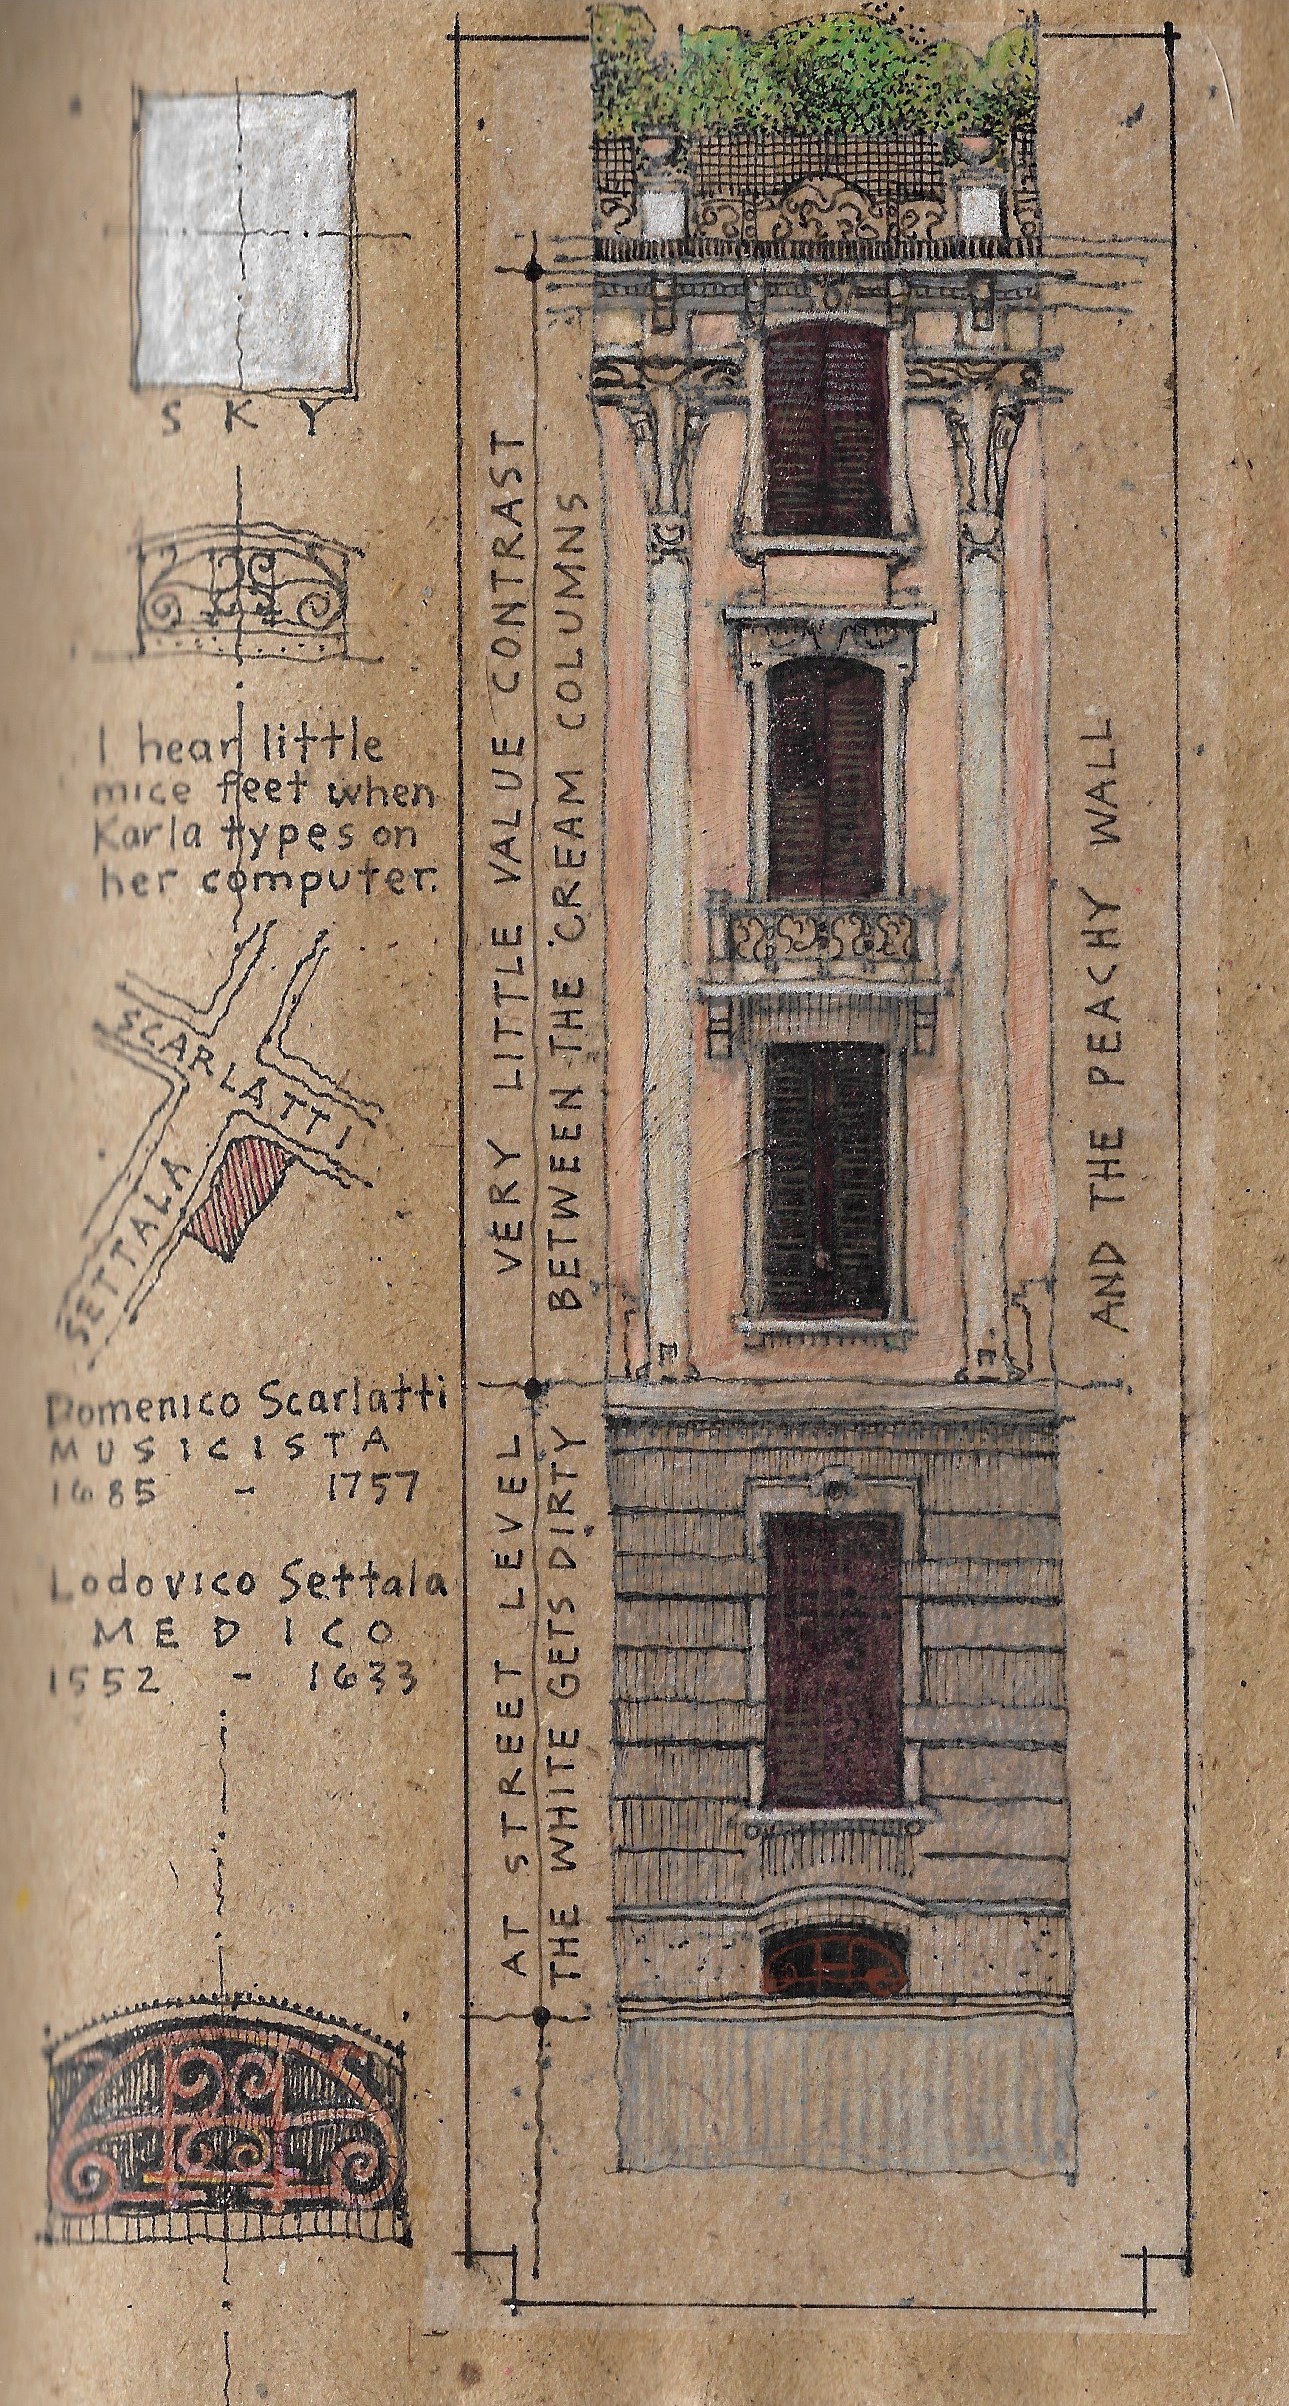 SKY
I hear little
mice feet when
Karla types on
her computer.
SCARLATTI
SETTALA
Domenico Scarlatti
MUSICISTA
1685 - 1757
Lodovico Settala
MEDICO
1552 - 1633
VERY LITTLE VALUE CONTRAST
BETWEEN THE CREAM COLUMNS
AND THE PEACHY WALL
AT STREET LEVEL
THE WHITE GETS DIRTY